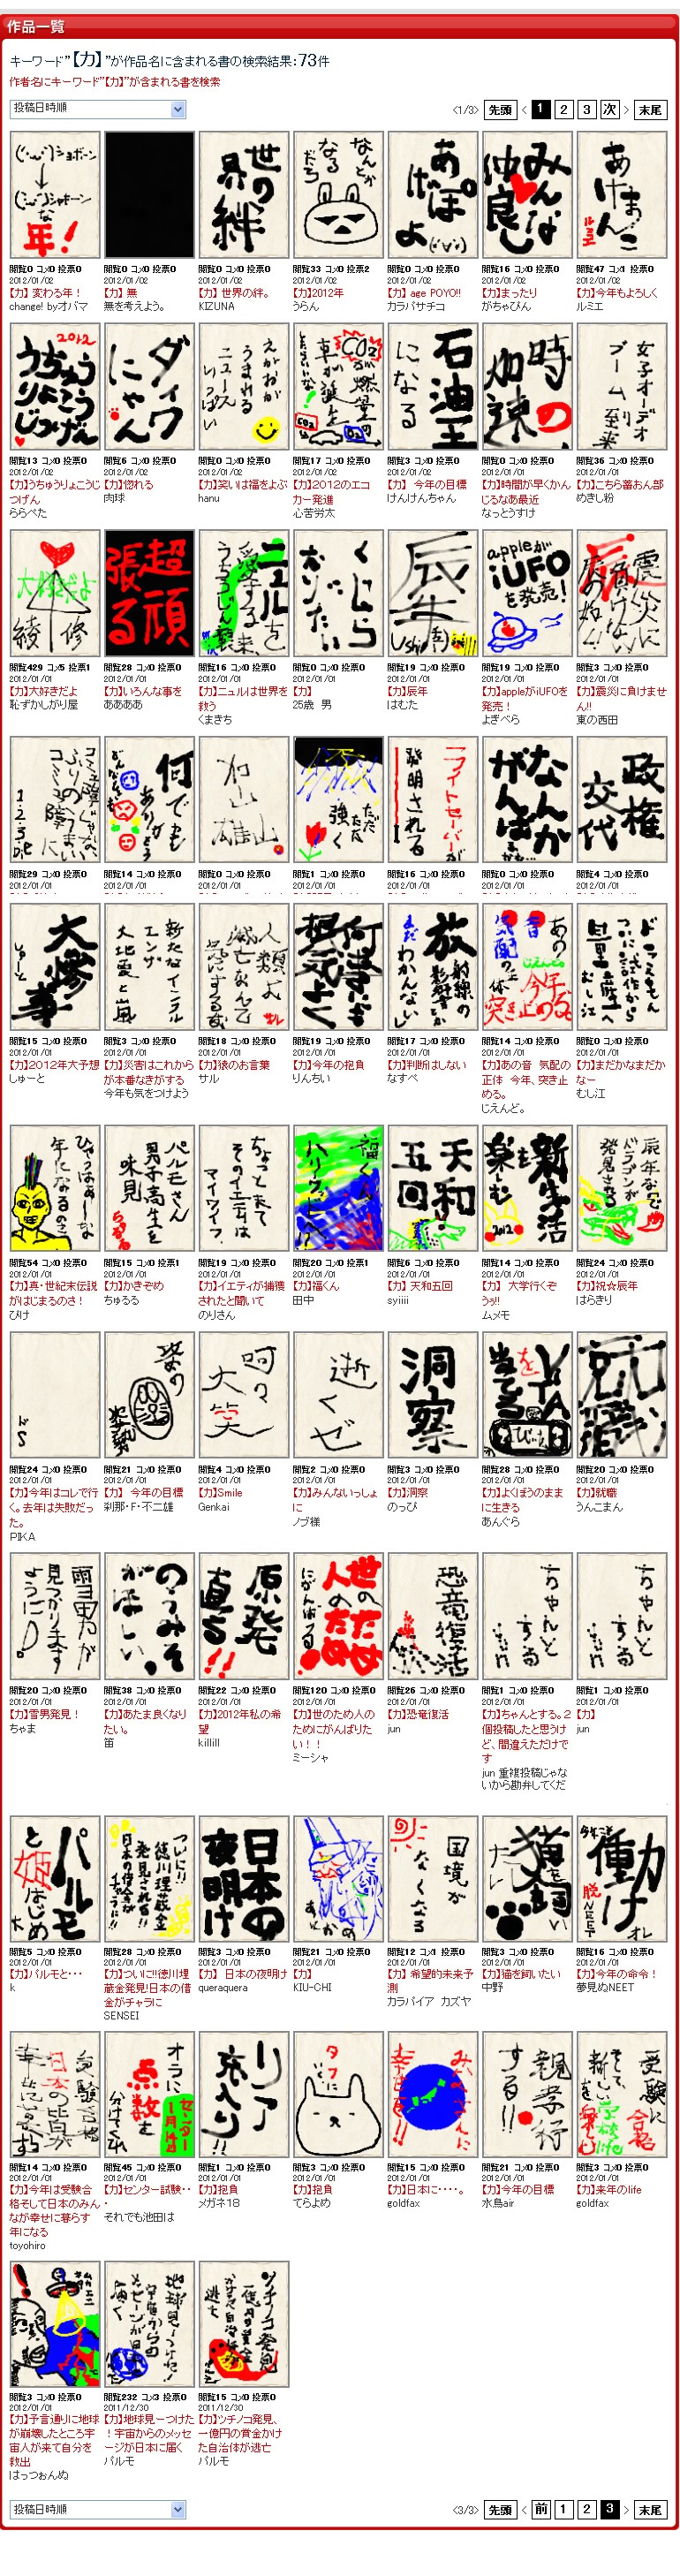 作品一覧
キーワード”【力】”が作品名に含まれる書の検索結果：73件
作者名にキーワード”【力】”が含まれる書を検索
投稿日時順
<1/3> 先頭 < 1 2 3 次 > 末尾
世界の絆
なんとかなるだろ
あげぽよ
みんな仲良し
閲覧0 コメ0 投票0
2012/01/02
【力】変わる年！
change! byオバマ
閲覧0 コメ0 投票0
2012/01/02
【力】 無
無を考えよう。
閲覧0 コメ0 投票0
2012/01/02
【力】 世界の絆。
KIZUNA
閲覧33 コメ0 投票2
2012/01/02
【力】2012年
うらん
閲覧0 コメ0 投票0
2012/01/02
【力】 age POYO!!
カラパサチコ
閲覧16 コメ0 投票0
2012/01/02
【力】まったり
がちゃぴん
閲覧47 コメ1 投票0
2012/01/02
【力】今年もよろしく
ルミエ
うちゅうりょこうじつげん
ダイワにゃん
石油王になる
時の加速
女子オデオブーム到来
閲覧13 コメ0 投票0
2012/01/02
【力】うちゅうりょこうじつげん
ららぺた
閲覧6 コメ0 投票0
2012/01/02
【力】惚れる
肉球
閲覧0 コメ0 投票0
2012/01/02
【力】笑いは福をよぶ
hanu
閲覧17 コメ0 投票0
2012/01/02
【力】2012のエコカー発進
心苦労太
閲覧3 コメ0 投票0
2012/01/02
【力】 今年の目標
けんけんちゃん
閲覧0 コメ0 投票0
2012/01/02
【力】時間が早くかんじるなあ最近
なっとうすけ
閲覧36 コメ0 投票0
2012/01/01
【力】こちら蓄おん部
めきし粉
超頑張る
appleがiUFOを発売！
閲覧429 コメ5 投票1
2012/01/01
【力】大好きだよ
恥ずかしがり屋
閲覧28 コメ0 投票0
2012/01/01
【力】いろんな事を
ああああ
閲覧16 コメ0 投票0
2012/01/01
【力】ニュルは世界を救う
くまきち
閲覧0 コメ0 投票0
2012/01/01
【力】
25歳 男
閲覧19 コメ0 投票0
2012/01/01
【力】辰年
はむた
閲覧19 コメ0 投票0
2012/01/01
【力】appleがiUFOを発売！
よぎべら
閲覧3 コメ0 投票0
2012/01/01
【力】震災に負けません!!
東の西田
加山雄山
ただただ強く
ライトセーバーが発明される
政権交代
閲覧29 コメ0 投票0
2012/01/01
閲覧14 コメ0 投票0
2012/01/01
閲覧0 コメ0 投票0
2012/01/01
閲覧1 コメ0 投票0
2012/01/01
閲覧16 コメ0 投票0
2012/01/01
閲覧0 コメ0 投票0
2012/01/01
閲覧4 コメ0 投票0
2012/01/01
大惨事
閲覧15 コメ0 投票0
2012/01/01
【力】2012年大予想
しゅーと
閲覧3 コメ0 投票0
2012/01/01
【力】災害はこれからが本番なきがする
今年も気をつけよう
閲覧18 コメ0 投票0
2012/01/01
【力】猿のお言葉
サル
閲覧19 コメ0 投票0
2012/01/01
【力】今年の抱負
りんちい
閲覧17 コメ0 投票0
2012/01/01
【力】判断はしない
なすべ
閲覧14 コメ0 投票0
2012/01/01
【力】あの音 気配の正体 今年、突き止める。
じえんど。
閲覧0 コメ0 投票0
2012/01/01
【力】まだかなまだかなー
むし江
天和五回
閲覧54 コメ0 投票0
2012/01/01
【力】真・世紀末伝説がはじまるのさ！
ぴけ
閲覧15 コメ0 投票1
2012/01/01
【力】かきぞめ
ちゅるる
閲覧19 コメ0 投票0
2012/01/01
【力】イエティが捕獲されたと聞いて
のりさん
閲覧20 コメ0 投票1
2012/01/01
【力】福くん
田中
閲覧6 コメ0 投票0
2012/01/01
【力】 天和五回
syiiii
閲覧14 コメ0 投票0
2012/01/01
【力】 大学行くぞうぅ!!
ムメモ
閲覧24 コメ0 投票0
2012/01/01
【力】祝☆辰年
はらきり
ドS
逝くぜ
洞察
閲覧24 コメ0 投票0
2012/01/01
【力】今年はコレで行く。去年は失敗だった。
PIKA
閲覧21 コメ0 投票0
2012/01/01
【力】 今年の目標
刹那・F・不二雄
閲覧4 コメ0 投票0
2012/01/01
【力】Smile
Genkai
閲覧2 コメ0 投票0
2012/01/01
【力】みんないっしょに
ノブ様
閲覧3 コメ0 投票0
2012/01/01
【力】洞察
のっぴ
閲覧28 コメ0 投票0
2012/01/01
【力】よくぼうのままに生きる
あんぐら
閲覧20 コメ0 投票0
2012/01/01
【力】就職
うんこまん
雪男が見つかりますように
のうみそがほしい
原発直る!!
恐竜復活
閲覧20 コメ0 投票0
2012/01/01
【力】雪男発見！
ちゃま
閲覧38 コメ0 投票0
2012/01/01
【力】あたま良くなりたい。
笛
閲覧22 コメ0 投票0
2012/01/01
【力】2012年私の希望
killill
閲覧120 コメ0 投票0
2012/01/01
【力】世のため人のためにがんばりたい！！
ミーシャ
閲覧26 コメ0 投票0
2012/01/01
【力】恐竜復活
jun
閲覧1 コメ0 投票0
2012/01/01
【力】ちゃんとする。2個投稿したと思うけど、間違えただけです
jun 重複投稿じゃないから勘弁してくだ
閲覧1 コメ0 投票0
2012/01/01
【力】
jun
日本の夜明け
国境がなくなる
猫を飼いたい
閲覧5 コメ0 投票0
2012/01/01
【力】パルモと・・・
k
閲覧28 コメ0 投票0
2012/01/01
【力】ついに!!徳川埋蔵金発見!日本の借金がチャラに
SENSEI
閲覧3 コメ0 投票0
2012/01/01
【力】 日本の夜明け
queraquera
閲覧21 コメ0 投票0
2012/01/01
【力】
KIU-CHI
閲覧12 コメ1 投票0
2012/01/01
【力】 希望的未来予測
カラパイア カズヤ
閲覧3 コメ0 投票0
2012/01/01
【力】猫を飼いたい
中野
閲覧16 コメ0 投票0
2012/01/01
【力】今年の命令！
夢見ぬNEET
リア充へ!!
親孝行する!!
閲覧14 コメ0 投票0
2012/01/01
【力】今年は受験合格そして日本のみんなが幸せに暮らす年になる
toyohiro
閲覧45 コメ0 投票0
2012/01/01
【力】センター試験・・・
それでも池田は
閲覧1 コメ0 投票0
2012/01/01
【力】抱負
メガネ18
閲覧3 コメ0 投票0
2012/01/01
【力】抱負
てらよめ
閲覧15 コメ0 投票0
2012/01/01
【力】日本に・・・・。
goldfax
閲覧21 コメ0 投票0
2012/01/01
【力】今年の目標
水鳥air
閲覧3 コメ0 投票0
2012/01/01
【力】来年のlife
goldfax
閲覧3 コメ0 投票0
2012/01/01
【力】予言通りに地球が崩壊したところ宇宙人が来て自分を救出
はっつぉんぬ
閲覧232 コメ3 投票0
2011/12/30
【力】地球見ーつけた！宇宙からのメッセージが日本に届く
パルモ
閲覧15 コメ0 投票0
2011/12/30
【力】ツチノコ発見、一億円の賞金かけた自治体が逃亡
パルモ
投稿日時順
<3/3> 先頭 < 前 1 2 3 > 末尾